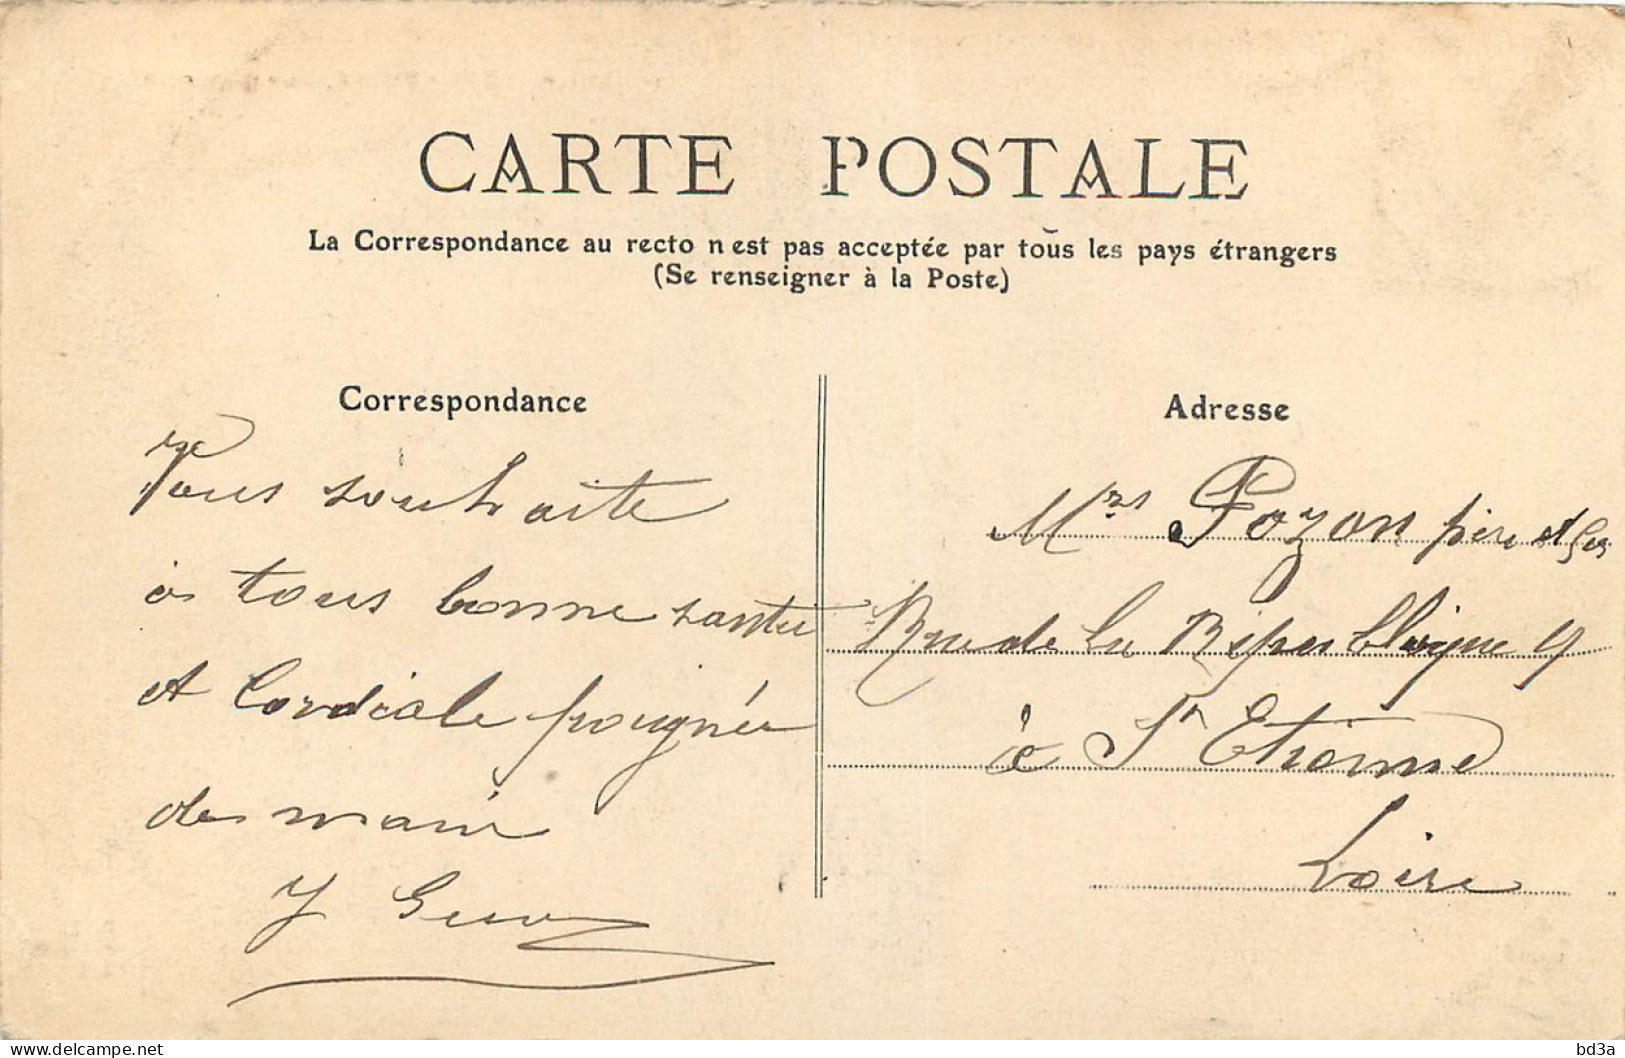 CARTE POSTALE
La Correspondance au recto n'est pas acceptée par tous les pays étrangers
(Se renseigner à la Poste)
Correspondance
Vous souhaite
à tous bonne santé
et Cordiale poignée
de main
J
Adresse
Mrs Pozon père et
Rue de la République 9
à St Etienne
Loire
delcampe.net
bd3a